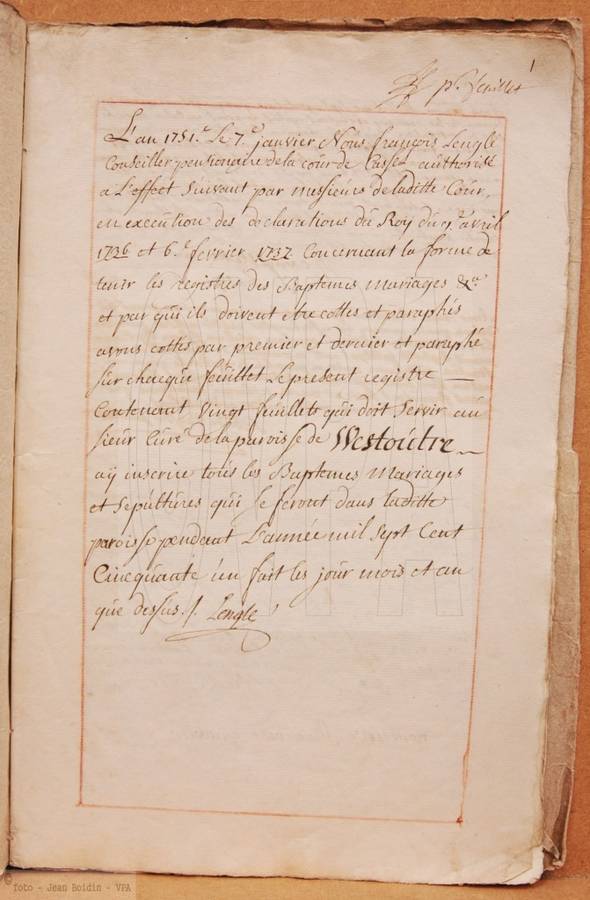 1
pr. feuillet
L'an 1751. Le 7.e janvier Nous françois Lenglé
Conseiller pensionaire de la cour de Cassel authorisé
a L'effect suivant par messieurs de laditte Cour,
en execution des declarations du Roy du 9.e avril
1736 et 6.e fevrier 1737 Concernant la forme de
tenir les registres des Baptemes mariages &a
et par qui ils doivent etre cottes et paraphés
avons cottes par premier et dernier et paraphé
sur chacque feuillet Le present registre —
Contenant Vingt feuillets qui doit Servir au
sieur Curé de la paroisse de Westoutre
aÿ inscrire tous les Baptemes Mariages
et Sepultures qui se feront dans laditte
paroisse pendant L'année mil Sept Cent
Cincquante un fait les jour mois et an
que dessus ./. Lenglé
© foto - Jean Boidin - VPA